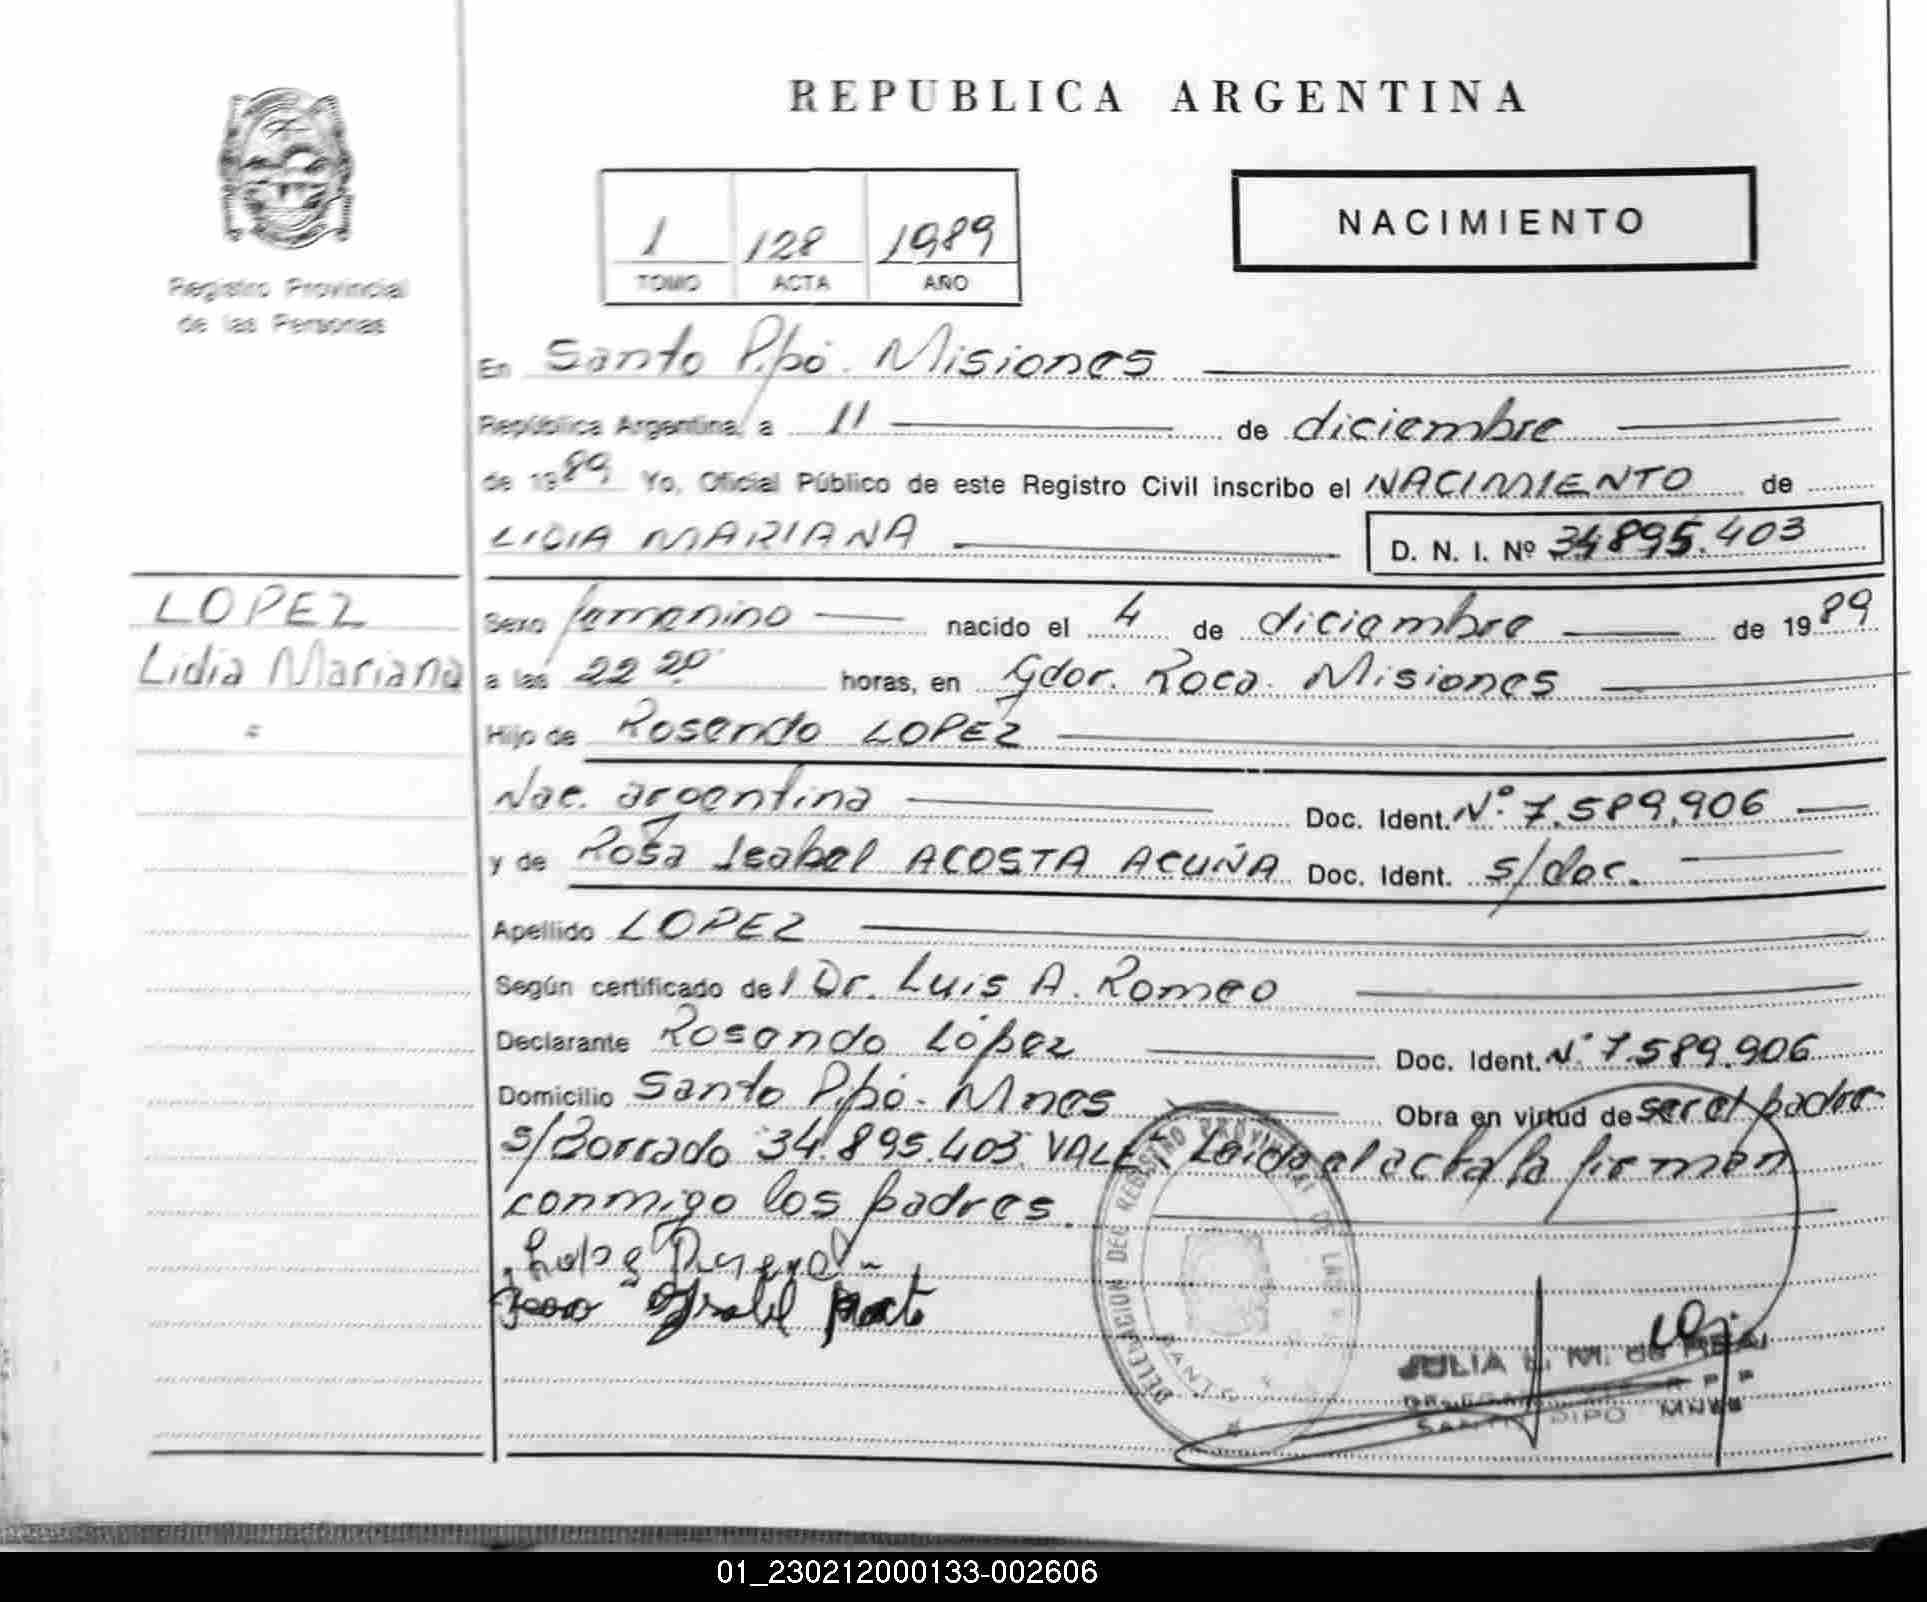 REPUBLICA ARGENTINA
Registro Provincial
de las Personas
1 128 1989
TOMO ACTA AÑO
NACIMIENTO
En Santo Pipó. Misiones
República Argentina, a 11 de diciembre
de 1989 Yo, Oficial Público de este Registro Civil inscribo el NACIMIENTO de
LIDIA MARIANA D. N. I. Nº 34895.403
LOPEZ
Lidia Mariana
Sexo femenino nacido el 4 de diciembre de 1989
a las 22 20 horas, en Gdor. Roca. Misiones
Hijo de Rosendo LOPEZ
Nac. argentina Doc. Ident. Nº 7.589.906
y de Rosa Isabel ACOSTA ACUÑA Doc. Ident. s/doc.
Apellido LOPEZ
Según certificado del Dr. Luis A. Romeo
Declarante Rosendo López Doc. Ident. Nº 7.589.906
Domicilio Santo Pipó - Mnes Obra en virtud de ser el padre
s/Borrado 34.895.403 VALE. Leida el acta la firman
conmigo los padres.
Lopez
Isabel
DELEGACION DEL REGISTRO PROVINCIAL DE LAS
SANTO
JULIA L. M. de
SANTO PIPO MNES
01_230212000133-002606